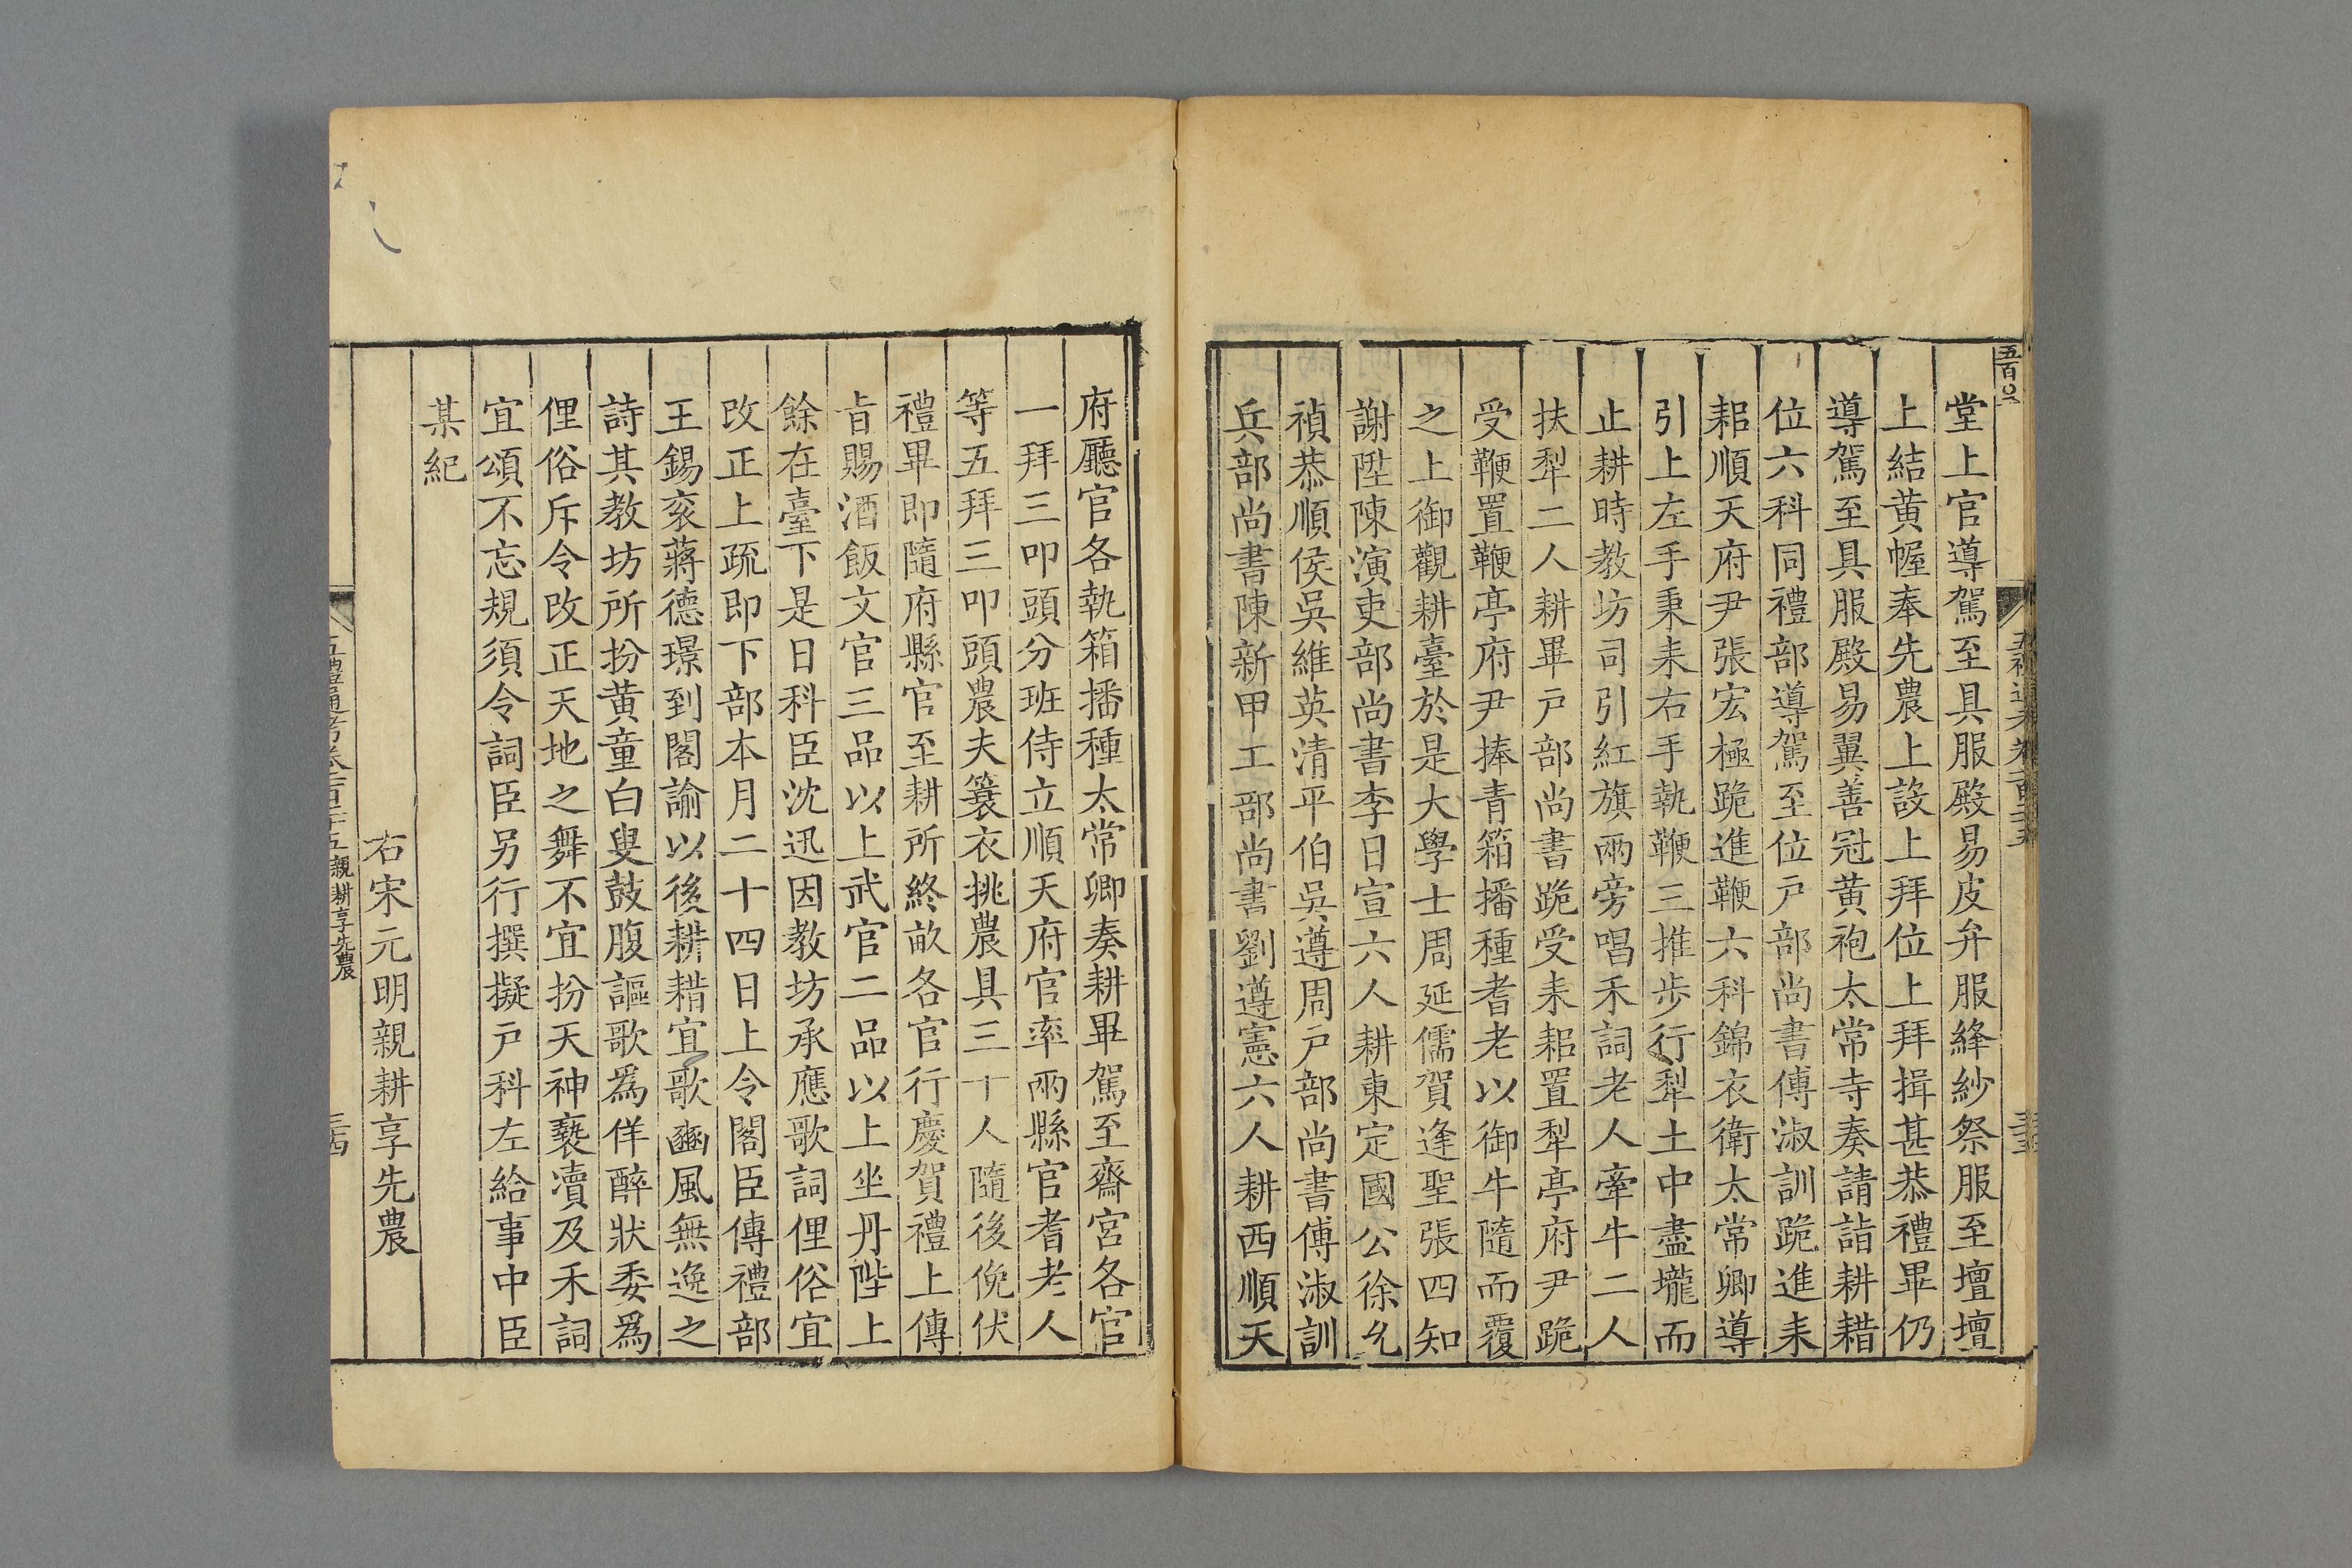 堂上官導駕至具服殿易皮弁服絳紗祭服至壇壇
上結黄幄奉先農上設上拜位上拜揖甚恭禮畢仍
導駕至具服殿易翼善冠黄袍太常寺奏請詣耕耤
位六科同禮部導駕至位戸部尚書傅淑訓跪進耒
耜順天府尹張宏極跪進鞭六科錦衣衛太常卿導
引上左手秉耒右手執鞭三推步行犁土中盡壠而
止耕時教坊司引紅旗兩旁唱禾詞老人牽牛二人
扶犁二人耕畢戸部尚書跪受耒耜置犁亭府尹跪
受鞭置鞭亭府尹捧青箱播種耆老以御牛隨而覆
之上御觀耕臺於是大學士周延儒賀逢聖張四知
謝陞陳演吏部尚書李日宣六人耕東定國公徐允
禎恭順侯吳維英清平伯吳遵周戸部尚書傅淑訓
兵部尚書陳新甲工部尚書劉遵憲六人耕西順天
府廳官各執箱播種太常卿奏耕畢駕至齋宮各官
一拜三叩頭分班侍立順天府官率兩縣官耆老人
等五拜三叩頭農夫簑衣挑農具三十人隨後俛伏
禮畢即隨府縣官至耕所終畝各官行慶賀禮上傳
旨賜酒飯文官三品以上武官二品以上坐丹陛上
餘在臺下是日科臣沈迅因教坊承應歌詞俚俗宜
改正上疏即下部本月二十四日上令閣臣傳禮部
王錫衮蔣德璟到閣諭以後耕耤宜歌豳風無逸之
詩其教坊所扮黄童白叟鼓腹謳歌爲佯醉狀委爲
俚俗斥令改正天地之舞不宜扮天神褻瀆及禾詞
宜頌不忘規須令詞臣另行撰擬戸科左給事中臣
某紀
右宋元明親耕享先農
五禮通考卷一百二十五親耕享先農